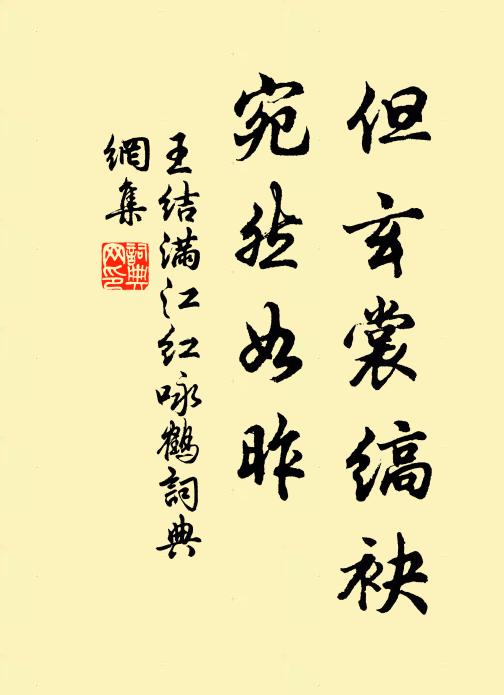 但玄裳缟袂
宛然如昨
王结满江红咏鹤詞典
網集
詞典
网印